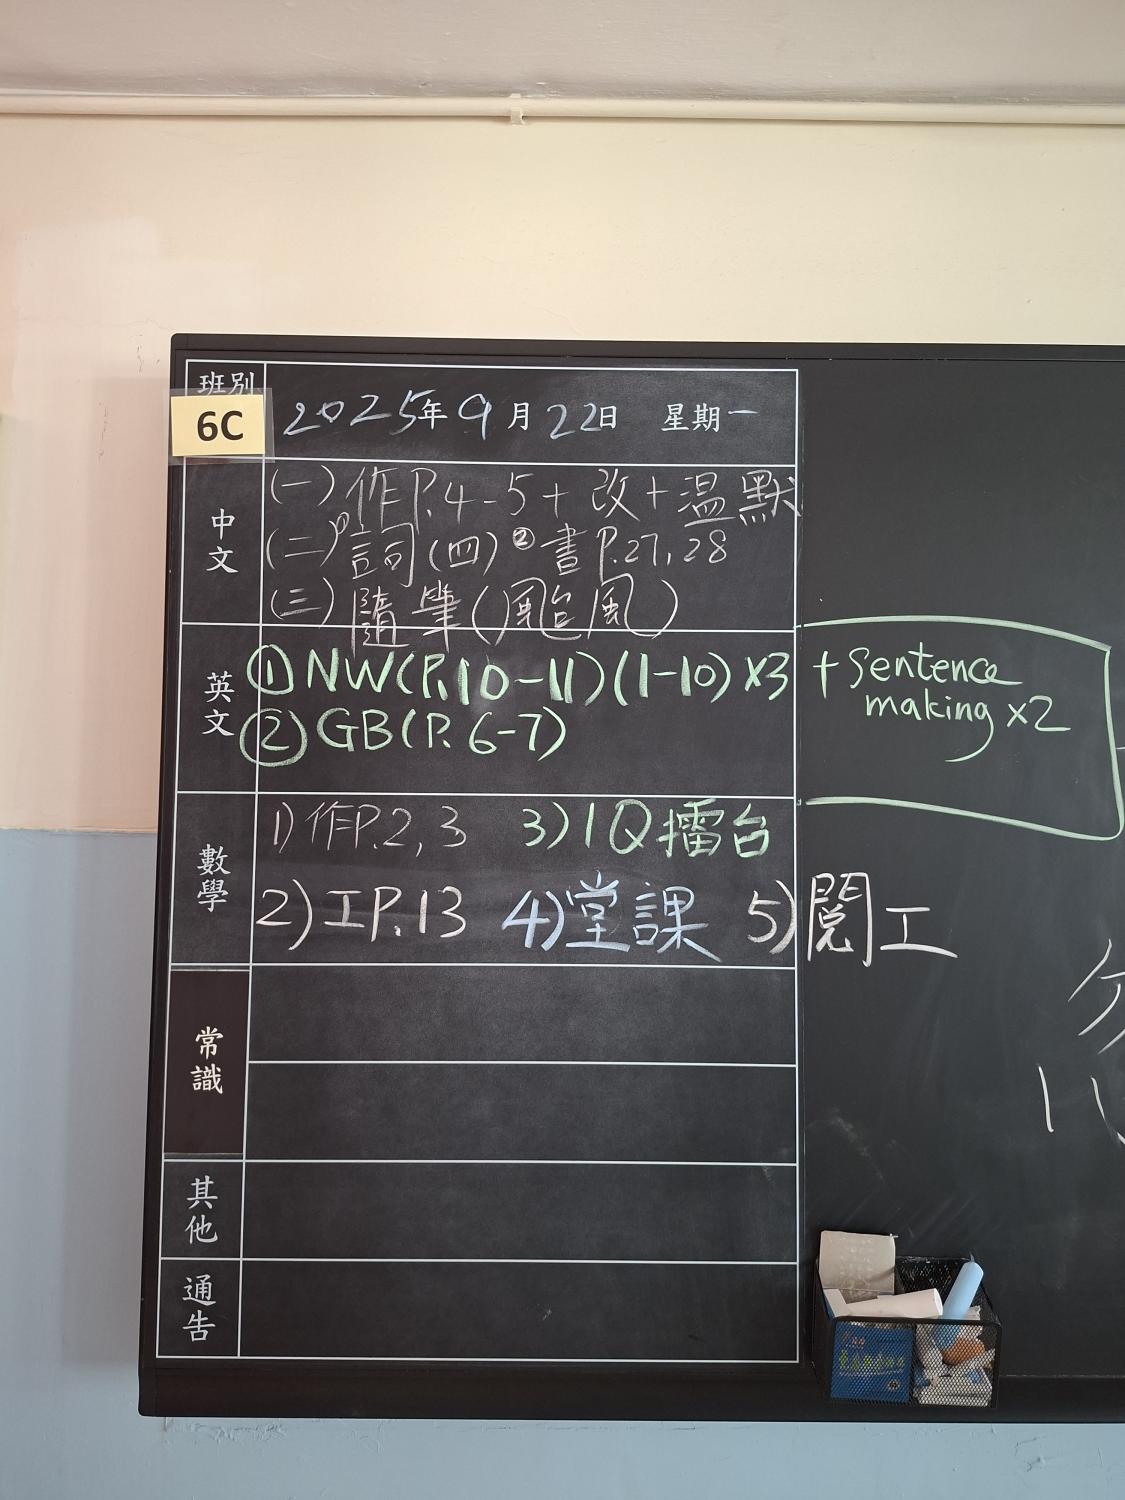 班別
6C
2025年9月22日 星期一
中文
(一)作P.4-5+改+溫默
(二)①詞(四)②書P.27,28
(三)隨筆(颱風)
英文
①NW(P.10-11)(1-10)×3 + Sentence making ×2
②GB(P.6-7)
數學
1)作P.2,3 3)IQ擂台
2)工P.13 4)堂課 5)閱工
常識
其他
通告